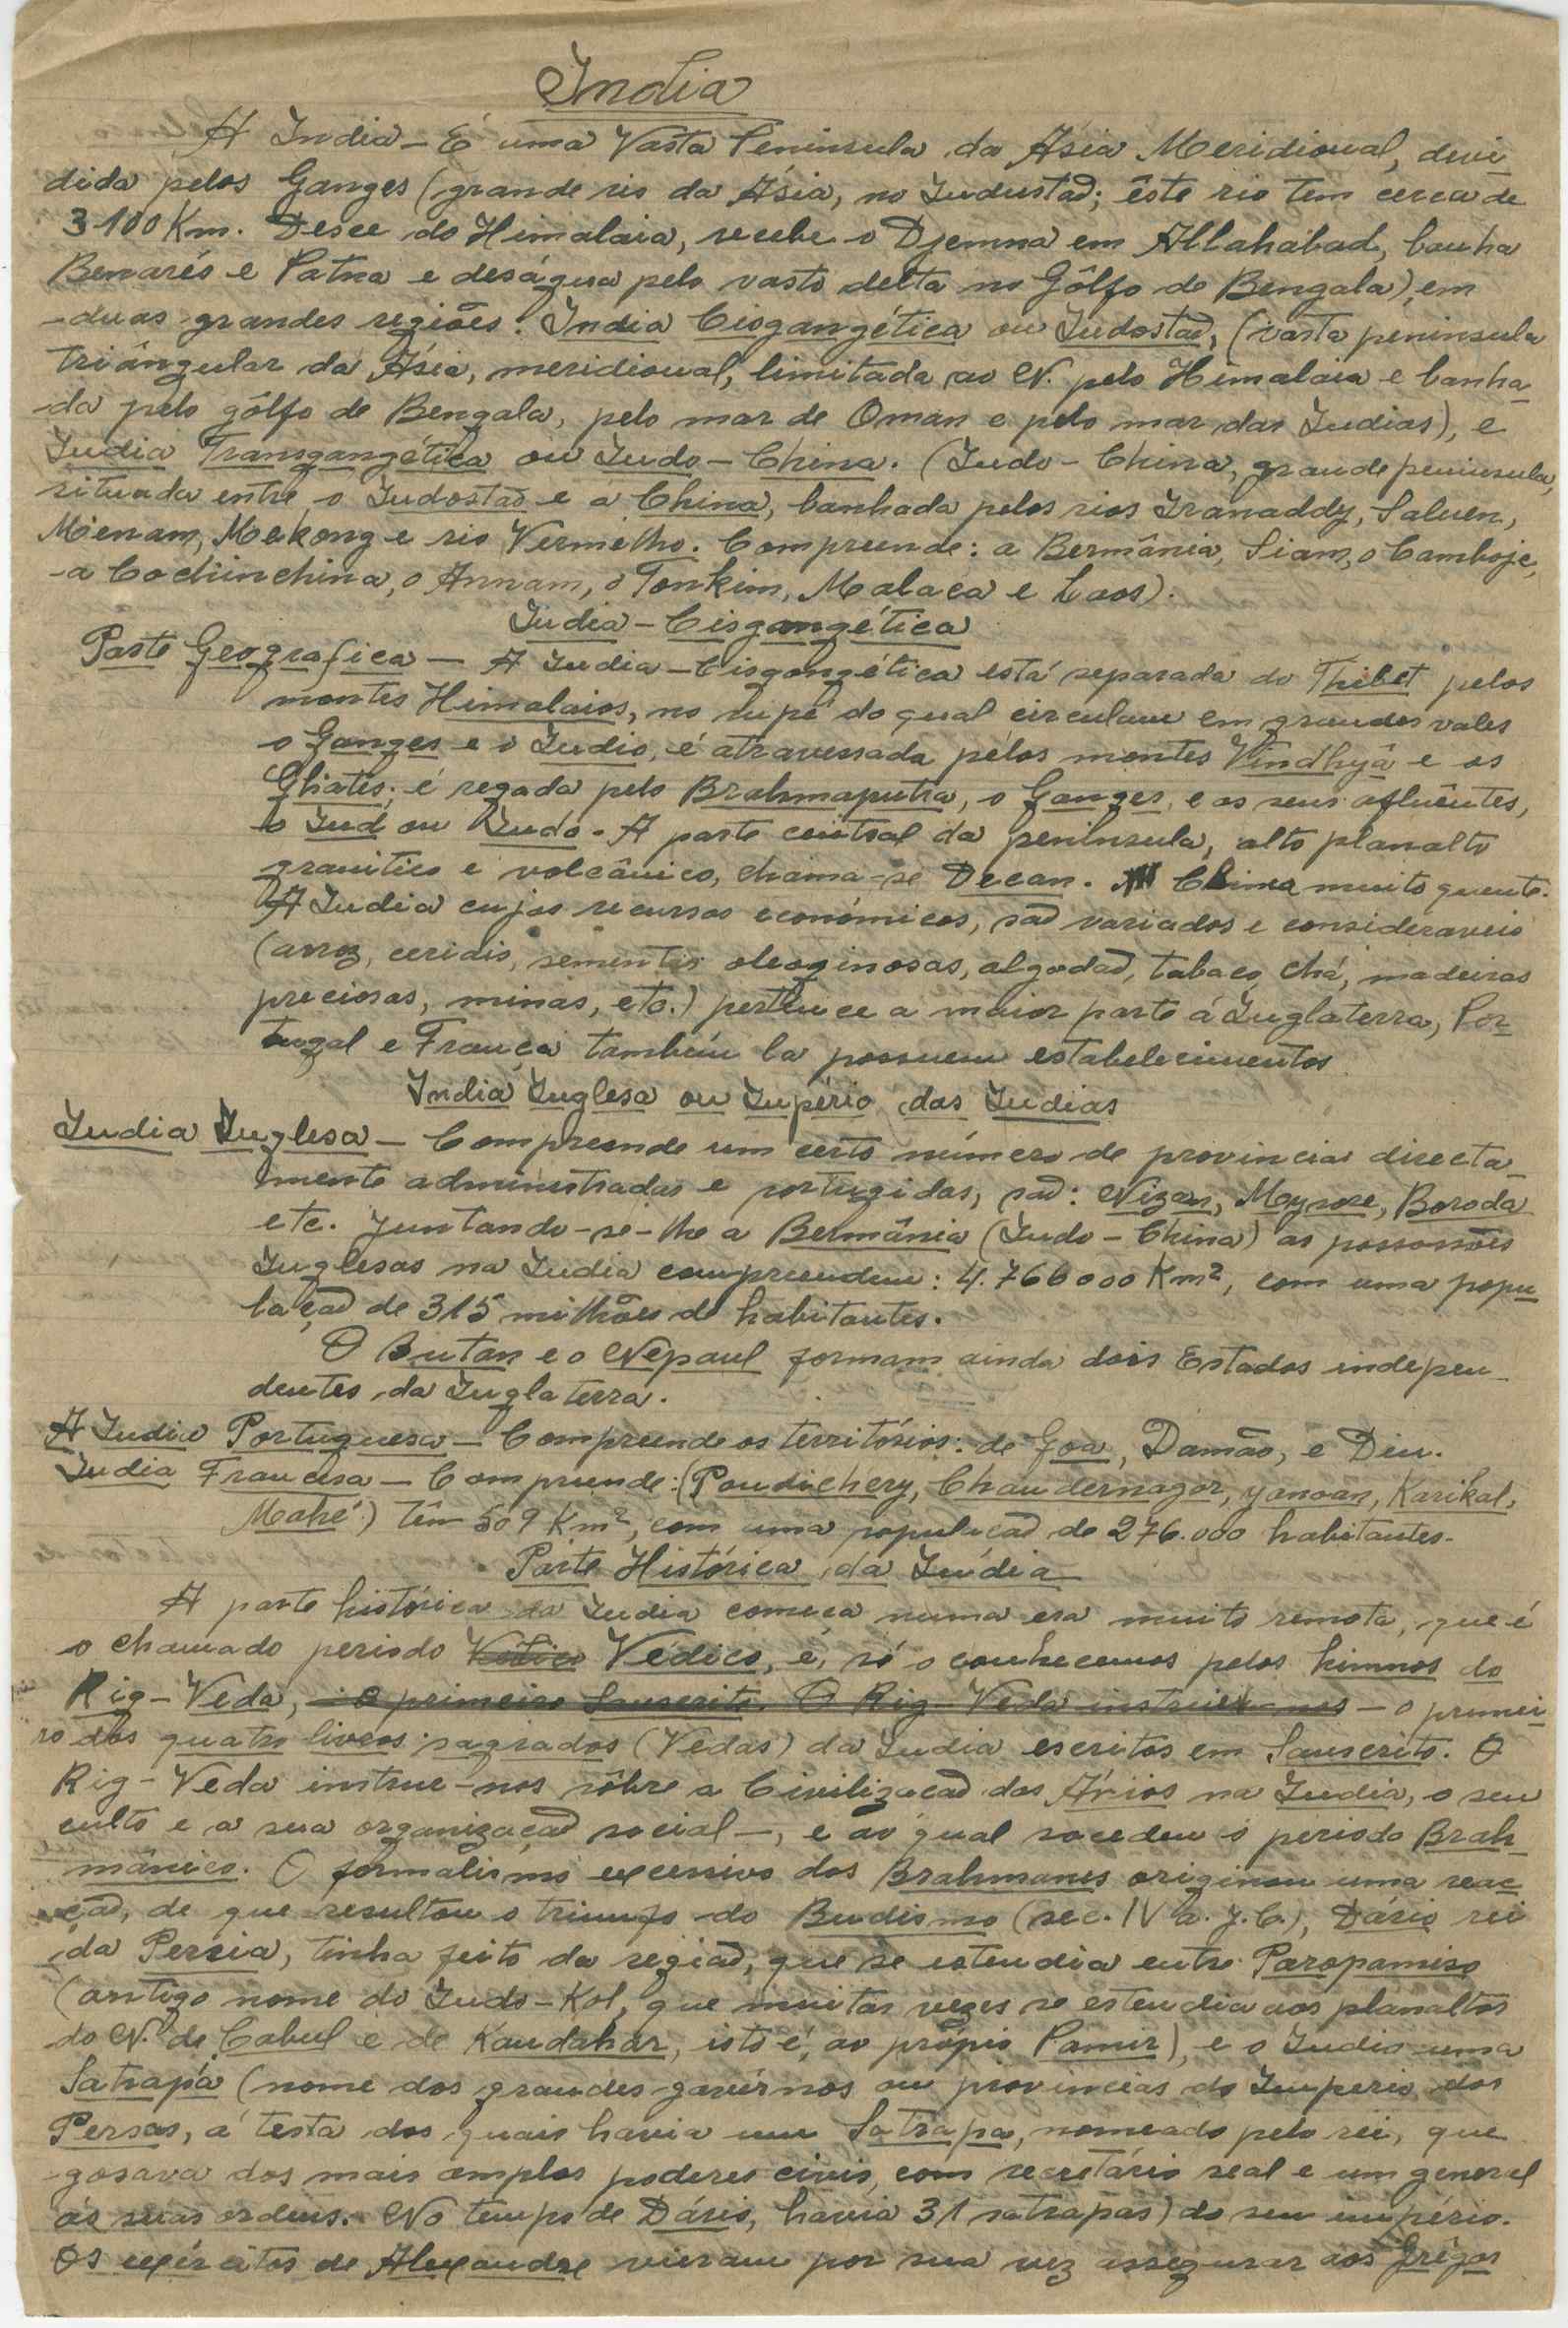 India
A India – É uma Vasta Peninsula da Ásia Meridional, devi-
dida pelos Ganges (grande rio da Ásia, no Industad; êste rio tem cerca de
3100 Km. Desce do Himalaia, recebe o Djemna em Allahabad, banha
Benarés e Patna e deságua pelo vasto delta no Gôlfo de Bengala), em
duas grandes regiões: India Cisgangética ou Indostad, (vasta peninsula
triângular da Ásia, meridional, limitada ao N. pelo Himalaia e banha-
da pelo gôlfo de Bengala, pelo mar de Oman e pelo mar das Indias), e
India Transgangética ou Indo-China. (Indo-China, grande peninsula,
situada entre o Indostad e a China, banhada pelos rios Iranaddy, Saluen,
Mienam, Mekong e rio Vermelho. Compreende: a Bermânia, Siam, o Camboje,
a Cochinchina, o Annam, o Tonkim, Malaca e Laos).
India-Cisgangética
Parte Geografica – A India-Cisgangética está separada do Thibet pelos
montes Himalaios, no supé do qual circulam em grandes vales
o Ganges e o Indio, é atravessada pelos montes Vindhyâ e os
Ghates; é regada pelo Brahmaputra, o Ganges, e os seus afluêntes,
o Ind ou Indo. A parte central da peninsula, alto planalto
granitico e volcânico, chama-se Decan. Clima muito quente.
A India cujos recursos económicos, sad variados e consideraveis
(arroz, ceriais, sementes oleoginosas, algodad, tabaco, chá, madeiras
preciosas, minas, etc.) pertence a maior parte á Inglaterra, Por-
tugal e França também la possuem estabelecimentos
India Inglesa ou Império das Indias
India Inglesa – Compreende um certo número de provincias directa-
mente administradas e portugidas, sad: Nizan, Mysore, Boroda
etc. Juntando-se-lhe a Belmânia (Indo-China) as possossões
Inglesas na India compreendem: 4.766000 Km², com uma popu-
laçad de 315 milhões de habitantes.
O Butan e o Nepaul formam ainda dois Estados indepen-
dentes da Inglaterra.
A India Portuguesa – Compreende os territórios: de Goa, Damão, e Diu.
India Francesa – Compreende: (Pondichery, Chandernagor, Yanoan, Karikal,
Mahé) têm 509 Km², com uma populaçad de 276.000 habitantes.
Parte Histórica da Índia
A parte histórica da India começa numa era muito remota, que é
o chamado periodo Védico, e, só o conhecemos pelos himnos do
Rig-Veda, o primeiro Sanscrito. O Rig-Veda instrue-nos – o primei-
ro dos quatro livros sagrados (Vedas) da India escritos em Sanscrito. O
Rig-Veda instrue-nos sôbre a Civilizaçad dos Ários na India, o seu
culto e a sua organizaçad social –, e ao qual sucedeu o periodo Brah-
mânico. O formalismo excessivo dos Brahmanes originou uma reac-
çad, de que resultou o triunfo do Budismo (sec. IV a. J. C.), Dário rei
da Persia, tinha feito da regiad, que se estendia entre Paropamiso
(antigo nome do Indo-Kol, que muitas vezes se estendia aos planaltos
do N. de Cabul e de Kandahar, isto é, ao própio Pamir), e o Indio uma
Satrapá (nome dos grandes govêrnos ou provincias do Imperio dos
Persas, á testa dos quais havia um Satrapa, nomeado pelo rei, que
gosava dos mais amplos poderes civis, com secretário real e um general
ás suas ordens. No tempo de Dário, havia 31 satrapas) do seu império.
Os exércitos de Alexandre vieram por sua vez assegurar aos Grêgos